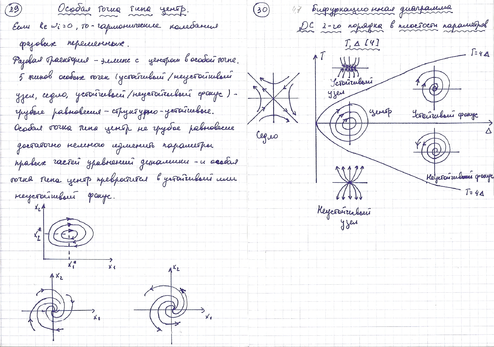 29
Особая точка типа центр.
Если Re λi=0, то - гармонические колебания
фазовых переменных.
Фазовая траектория - эллипс с центром в особой точке.
5 типов особых точек (устойчивый/неустойчивый
узел, седло, устойчивый/неустойчивый фокус) -
грубые равновесия - структурно-устойчивые.
Особая точка типа центр не грубое равновесие
достаточно изменения параметра
правых частей уравнений динамики - и особая
точка типа центр превратится в устойчивый или
неустойчивый фокус.
x₂
x₁
x₂
x₁
x₂
x₁
30
Бифуркационная диаграмма
ДС 2-го порядка в плоскости параметров
T, Δ [4]
T
T=4Δ
Устойчивый
узел
центр
Устойчивый фокус
Седло
Δ
Неустойчивый фокус
Неустойчивый
узел
T=4Δ